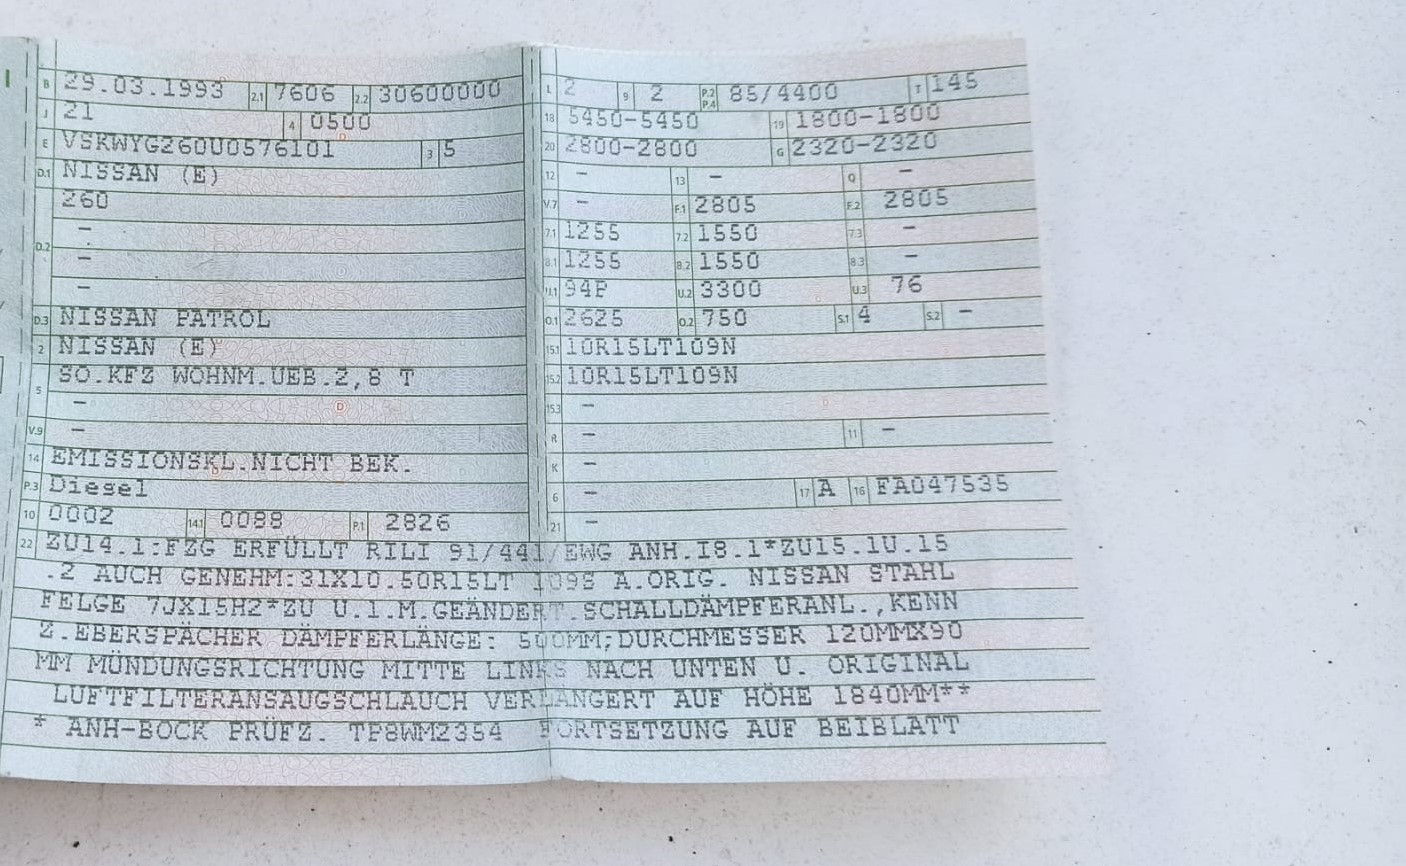 B 29.03.1993 2.1 7606 2.2 30600000
J 21 4 0500
E VSKWYG260U0576101 3 5
D.1 NISSAN (E)
260
-
D.2
-
-
D.3 NISSAN PATROL
2 NISSAN (E)
SO.KFZ WOHNM.UEB.2,8 T
5
-
V.9 -
14 EMISSIONSKL.NICHT BEK.
P.3 Diesel
10 0002 14.1 0088 P.1 2826
L 2 9 2 P.2 P.4 85/4400 T 145
18 5450-5450 19 1800-1800
20 2800-2800 G 2320-2320
12 - 13 - Q -
V.7 - F.1 2805 F.2 2805
7.1 1255 7.2 1550 7.3 -
8.1 1255 8.2 1550 8.3 -
U.1 94P U.2 3300 U.3 76
O.1 2625 O.2 750 S.1 4 S.2 -
15.1 10R15LT109N
15.2 10R15LT109N
15.3 -
R - 11 -
K -
6 - 17 A 16 FA047535
21 -
22 ZU14.1:FZG ERFÜLLT RILI 91/441/EWG ANH.I8.1*ZU15.1U.15
.2 AUCH GENEHM:31X10.50R15LT 109S A.ORIG. NISSAN STAHL
FELGE 7JX15H2*ZU U.1.M.GEÄNDERT.SCHALLDÄMPFERANL.,KENN
Z.EBERSPÄCHER DÄMPFERLÄNGE: 500MM;DURCHMESSER 120MMX90
MM MÜNDUNGSRICHTUNG MITTE LINKS NACH UNTEN U. ORIGINAL
LUFTFILTERANSAUGSCHLAUCH VERLÄNGERT AUF HÖHE 1840MM**
* ANH-BOCK PRÜFZ. TP8WM2354 FORTSETZUNG AUF BEIBLATT